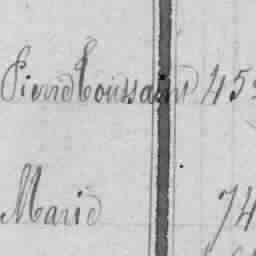 Pierre Toussaint 45
Marie 74